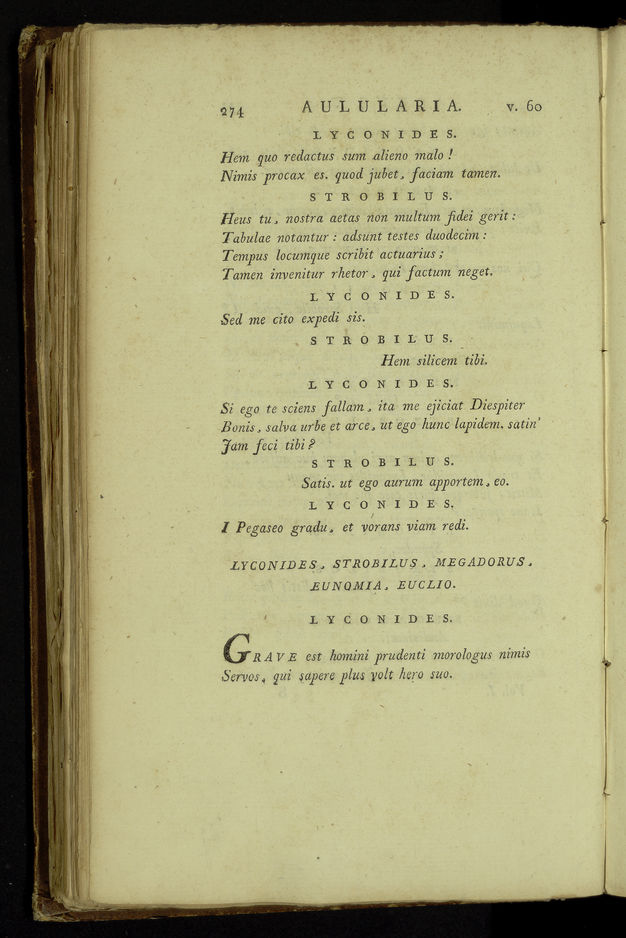 274 AULULARIA. v. 60
LYCONIDES.
Hem quo redactus sum alieno malo !
Nimis procax es. quod jubet, faciam tamen.
STROBILUS.
Heus tu, nostra aetas non multum fidei gerit :
Tabulae notantur : adsunt testes duodecim :
Tempus locumque scribit actuarius ;
Tamen invenitur rhetor, qui factum neget.
LYCONIDES.
Sed me cito expedi sis.
STROBILUS.
Hem silicem tibi.
LYCONIDES.
Si ego te sciens fallam, ita me ejiciat Diespiter
Bonis, salva urbe et arce, ut ego hunc lapidem. satin'
Jam feci tibi ?
STROBILUS.
Satis. ut ego aurum apportem, eo.
LYCONIDES.
I Pegaseo gradu, et vorans viam redi.
LYCONIDES, STROBILUS, MEGADORUS,
EUNOMIA, EUCLIO.
LYCONIDES.
GRAVE est homini prudenti morologus nimis
Servos, qui sapere plus volt hero suo.